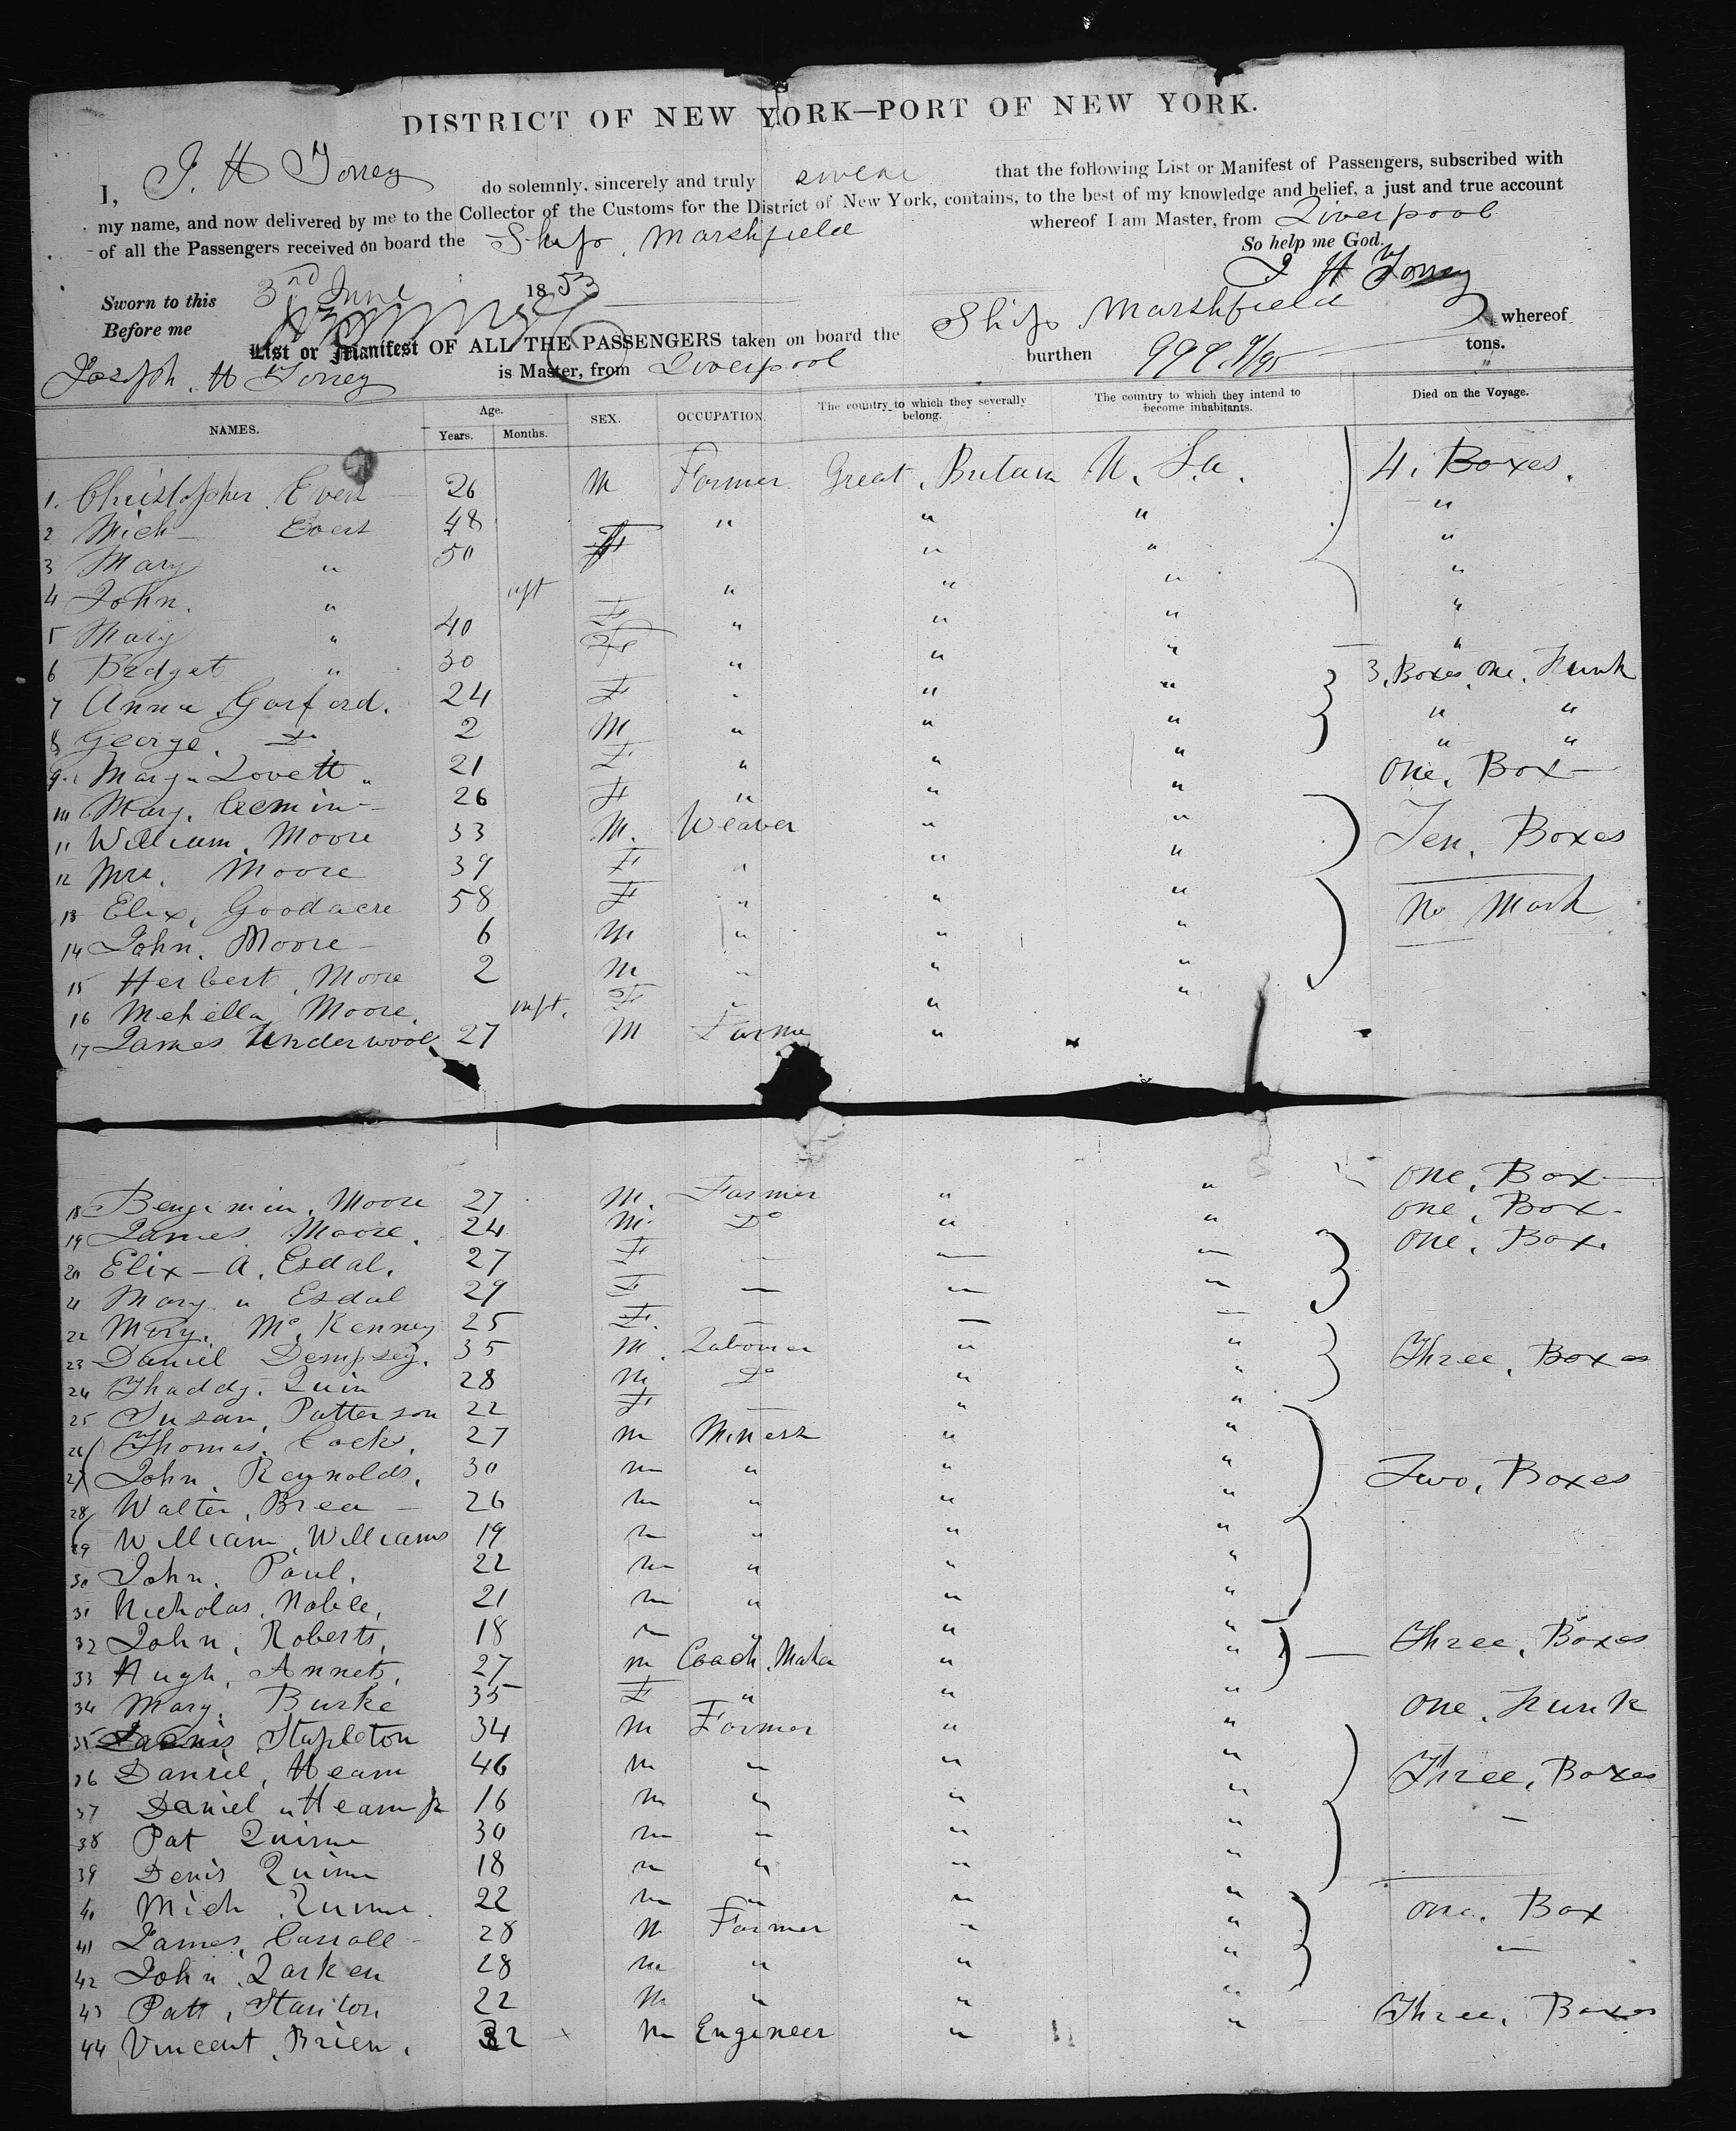 DISTRICT OF NEW YORK—PORT OF NEW YORK.
I, J. H Torrey do solemnly, sincerely and truly swear that the following List or Manifest of Passengers, subscribed with
my name, and now delivered by me to the Collector of the Customs for the District of New York, contains, to the best of my knowledge and belief, a just and true account
of all the Passengers received on board the Ship Marshfield whereof I am Master, from Liverpool
So help me God.
J H Torrey
Sworn to this 3rd June 1853
Before me
List or Manifest OF ALL THE PASSENGERS taken on board the Ship Marshfield whereof
Joseph H Torrey is Master, from Liverpool burthen tons.
NAMES. Age. Years. Months. SEX. OCCUPATION. The country to which they severally belong. The country to which they intend to become inhabitants. Died on the Voyage.
1. Christopher 26 M Farmer Great Britain U. S. a. 4. Boxes.
2 Mich 48 " " " "
3 Mary " 50 F " " "
4 John. " inft " " " "
5 Mary " 40 F " " " "
6 Bridget " 30 F " " " "
7 Anna Garford. 24 F " " " 3. Boxes. One. Trunk
8 George. Do 2 M " " " " "
9 Mary " Lovett " 21 F " " " " "
10 Mary. 26 F " " " One. Box
11 William. Moore 33 M. Weaver " "
12 Mrs. Moore 39 F " " " Ten. Boxes
13 Eliz. Goodacre 58 F " " "
14 John. Moore 6 M " " " No Mark
15 Herbert. Moore 2 M " " "
16 Moore. inft. F " " "
17 James Underwood 27 M Farme " "
18 Benjimin. Moore 27 M. Farmer " " One. Box
19 James. Moore. 24 M. Do " " One. Box
20 Eliz — A. Esdal. 27 F — — — One. Box.
21 Mary " Esdal 29 F — — —
22 Mary. Mc Kenney 25 F. — — —
23 Daniel Dempsey. 35 M. Labourer " " Three. Boxes
24 Thaddy. Quin 28 M Do " "
25 Susan. Patterson 22 F — " "
26 Thomas. Cocks. 27 M Miners " "
27 John. Reynolds. 30 M " " " Two. Boxes
28 Walter. Brea 26 M " " "
29 William. Williams 19 M " " "
30 John. Paul. 22 M " " "
31 Nicholas. Noble. 21 M " " "
32 John. Roberts. 18 M " " "
33 Hugh. Annets. 27 M Coach. Maker " " Three. Boxes
34 Mary. Burke 35 F " " "
35 Stapleton 34 M Farmer " " One. Trunk
36 Daniel. Hearn 46 M " " "
37 Daniel " Hearn Jr 16 M " " " Three. Boxes
38 Pat Quinn 30 M " " " "
39 Denis Quinn 18 M " " "
40 Mich Quinn. 22 M " " "
41 James. Carroll 28 M Farmer " " One. Box
42 John. Larken 28 M " " " "
43 Patt. Stanton 22 M " " "
44 Vincent. Brien. 32 M Engineer " " Three. Boxes